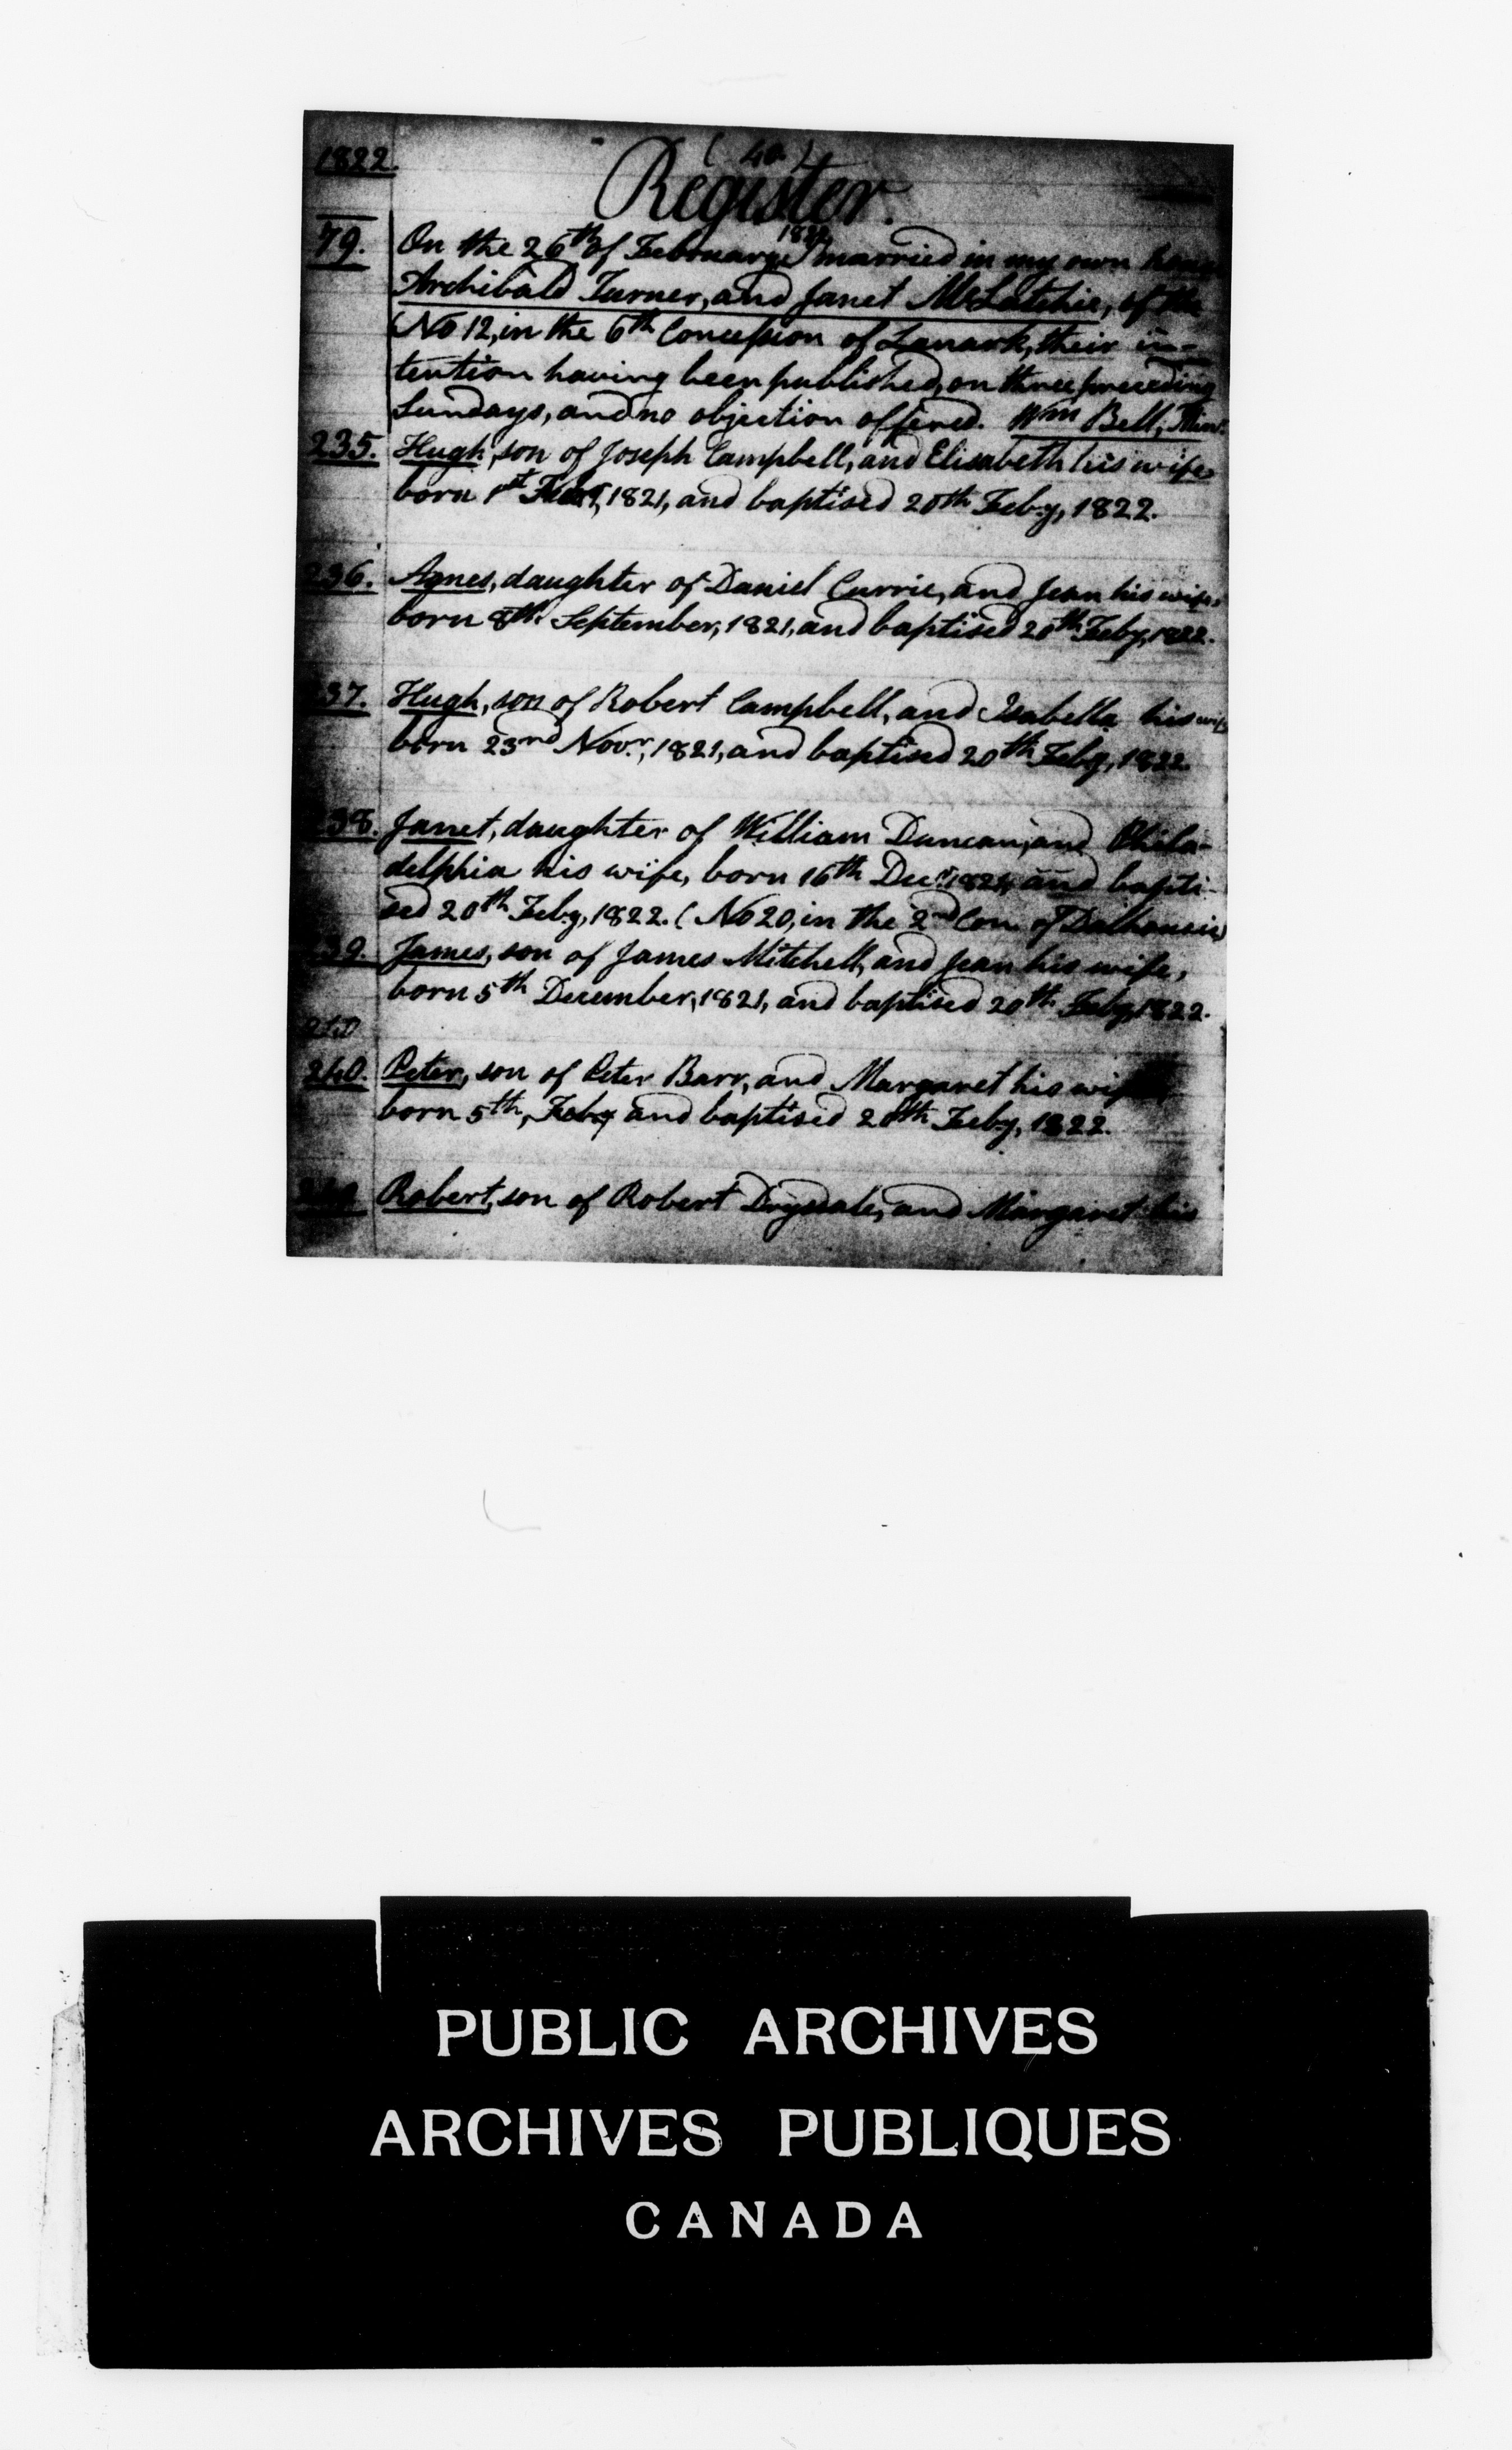 1822.
( 40. )
Register.
79. On the 26th of February 1822 married in my own house
Archibald Turner, and Janet McLatchie, of the
No 12, in the 6th Concession of Lanark, their in-
tention having been published, on three preceding
Sundays, and no objection offered. Wm Bell, Min.
235. Hugh, son of Joseph Campbell, and Elisabeth his wife
born 1st 1821, and baptised 20th Feby, 1822.
236. Agnes, daughter of Daniel Currie, and Jean his wife,
born 8th September, 1821, and baptised 20th Feby, 1822.
237. Hugh, son of Robert Campbell, and Isabella his wife
born 23rd Novr, 1821, and baptised 20th Feby, 1822.
238. Janet, daughter of William Duncan, and Phila-
delphia his wife, born 16th Decr, 1821, and bapti-
sed 20th Feby, 1822. (No 20, in the 2nd Con. of Dalhousie)
239. James, son of James Mitchell, and Jean his wife,
born 5th December, 1821, and baptised 20th Feby, 1822.
240
240. Peter, son of Peter Barr, and Margaret his wife
born 5th, Feby and baptised 20th Feby, 1822.
Robert, son of Robert Drysdale, and Margaret his
PUBLIC ARCHIVES
ARCHIVES PUBLIQUES
CANADA